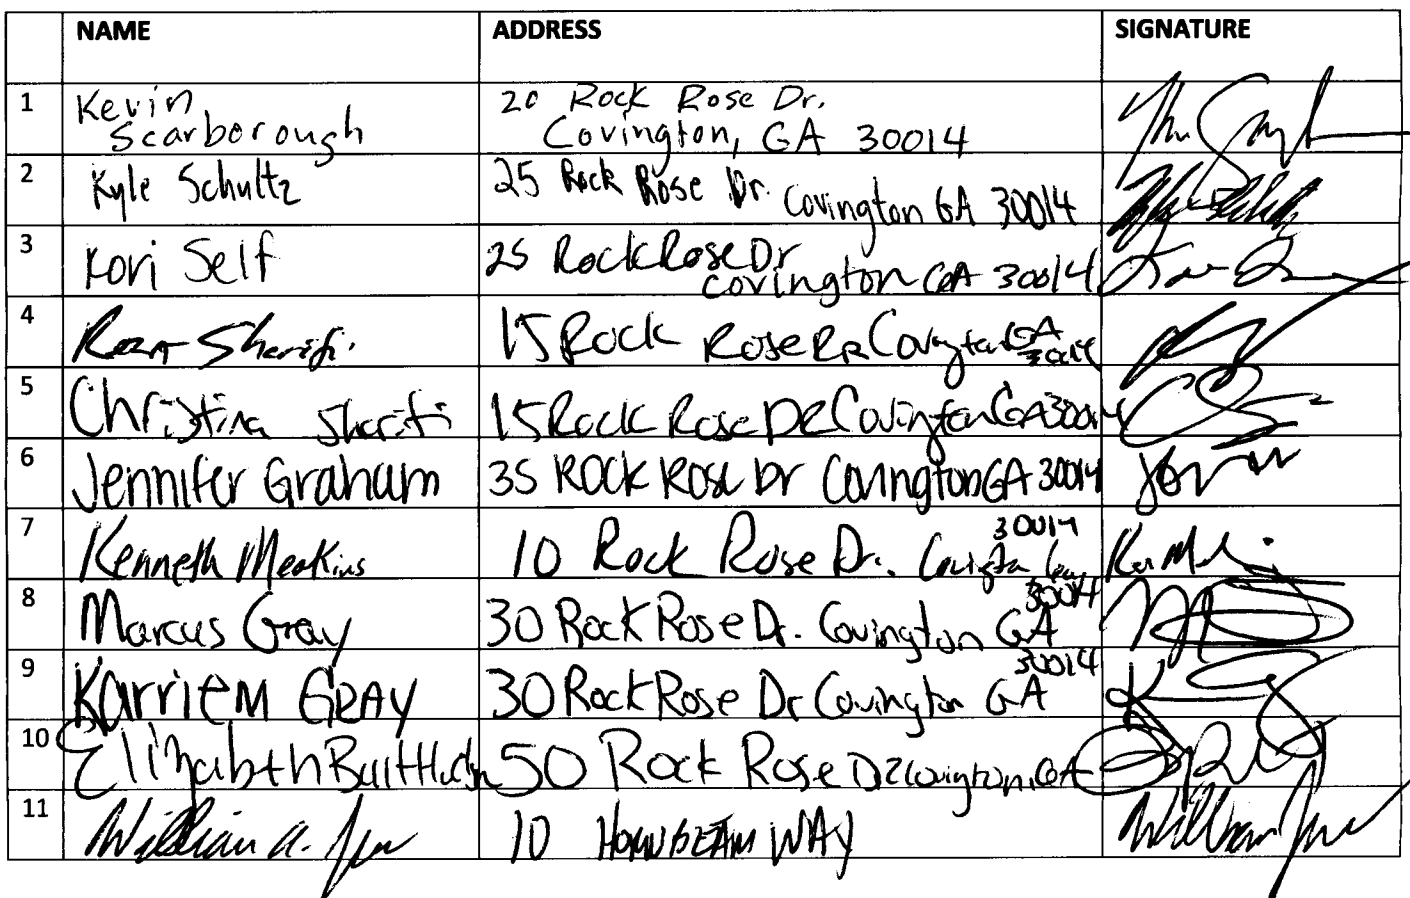 NAME ADDRESS SIGNATURE
1 Kevin Scarborough 20 Rock Rose Dr.
Covington, GA 30014
2 Kyle Schultz 25 Rock Rose Dr. Covington GA 30014
3 Kori Self 25 Rock Rose Dr
Covington GA 30014
4 Sharifi 15 Rock Rose DR Covington GA
30014
5 Christina Sharifi 15 Rock Rose DR Covington GA 30014
6 Jennifer Graham 35 ROCK ROSE Dr Covington GA 30014
7 Kenneth Meakins 10 Rock Rose Dr. Covington 30014
8 Marcus Gray 30 Rock Rose Dr. Covington GA 30014
9 Karriem GRAY 30 Rock Rose Dr Covington GA 30014
10 Elizabeth 50 Rock Rose DR Covington, GA
11 William A. 10 HORNBEAM WAY William